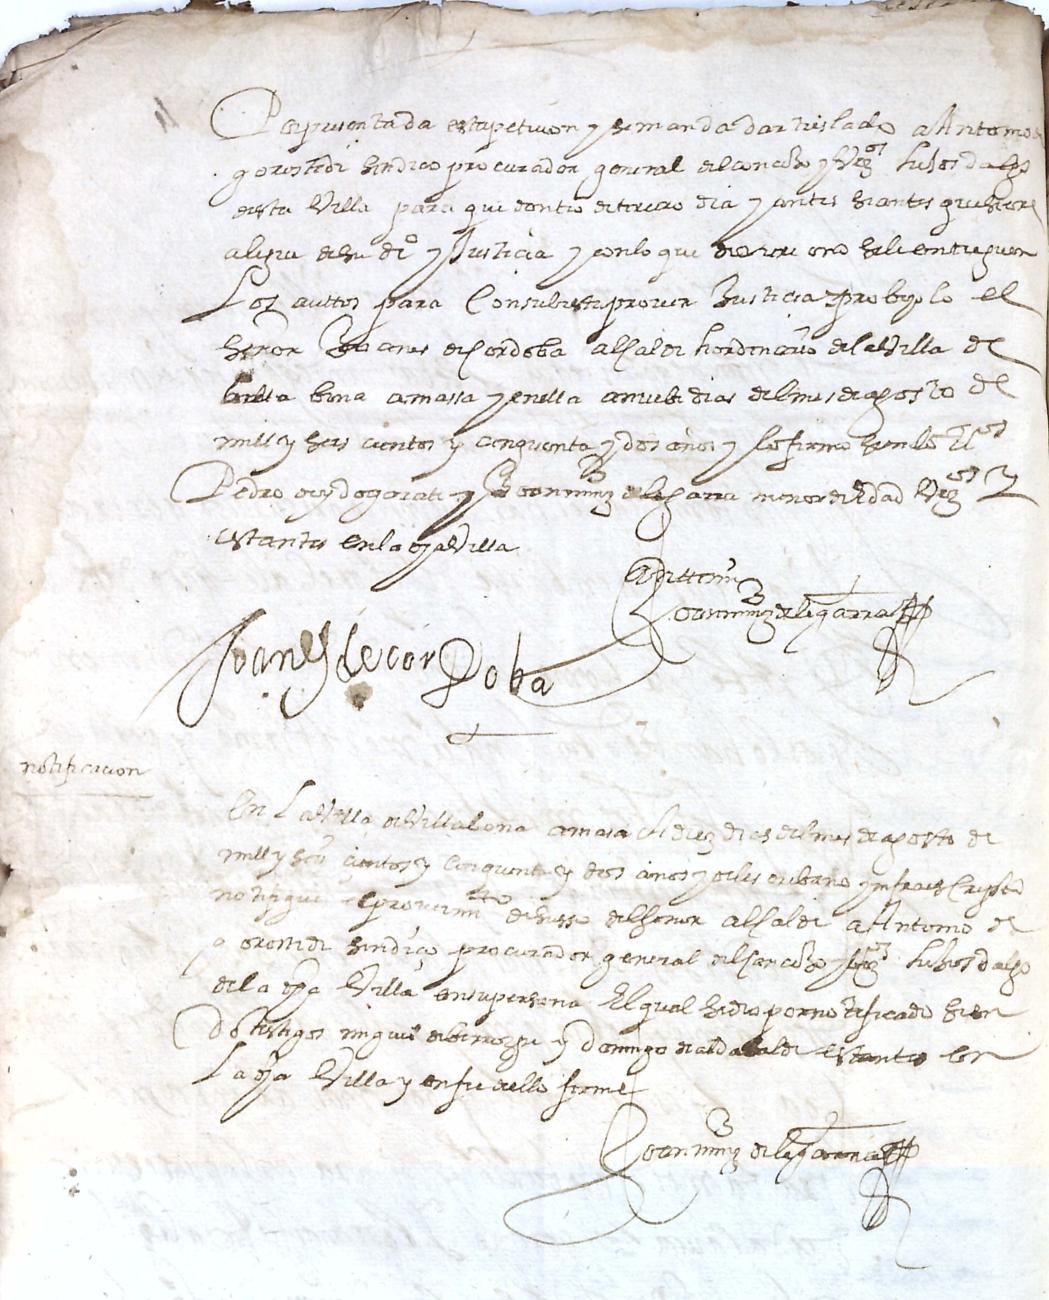 Por presentada esta peticion y se manda dar treslado a Antonio de
gorostidi sindico procurador general del concejo y vezos hijos dalgo
desta Villa para que dentro de tercero dia y antes si antes quisiere
alegue de su dro y Justicia y con lo que dixiere o no se le entreguen
Los auttos para Consultar y prover Justicia y probeyo lo el
señor Joanes de cordoba alcalde hordinario de la Villa de
billa bona amassa y en ella a nuebe dias del mes de agosto de
mill y seis cientos y cinquenta y dos años y lo firmo siendo tos
Pedro de y Joan mrnz de legarra menor de edad vezos y
estantes en la dha Villa
Joanes de cordoba
Ante mi
Joan mrnz de legarra
notificacion
En La Villa de Villabona amasa a diez dias del mes de agosto de
mill y seis cientos y cinquenta y dos años yo el escribano ynfraescripto
notifique el proveimto de susso del señor alcalde a Antonio de
gorostidi sindico procurador general del concejo y vezos hijos dalgo
de la dha Villa en su persona El qual se dio por notificado sien
do testigos miguel de y Domingo de estantes en
La dha Villa y en fee dello firme
Joan mrnz de legarra